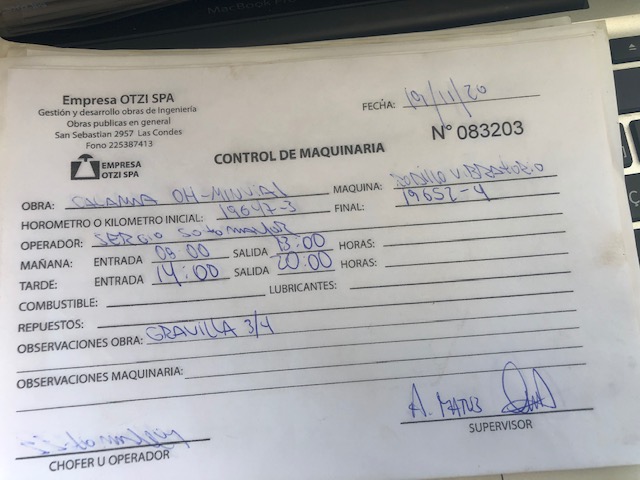 Empresa OTZI SPA
Gestión y desarrollo obras de Ingeniería
Obras publicas en general
San Sebastian 2957 Las Condes
Fono 225387413
EMPRESA
OTZI SPA
CONTROL DE MAQUINARIA
FECHA: 19/11/20
N° 083203
OBRA: MAQUINA: Rodillo
HOROMETRO O KILOMETRO INICIAL: 19647-3 FINAL: 19652-4
OPERADOR: SERGIO Sotomayor
MAÑANA: ENTRADA 08:00 SALIDA 13:00 HORAS:
TARDE: ENTRADA 14:00 SALIDA 20:00 HORAS:
COMBUSTIBLE: LUBRICANTES:
REPUESTOS:
OBSERVACIONES OBRA: GRAVILLA 3/4
OBSERVACIONES MAQUINARIA:
CHOFER U OPERADOR
A. MATUS
SUPERVISOR
MacBook